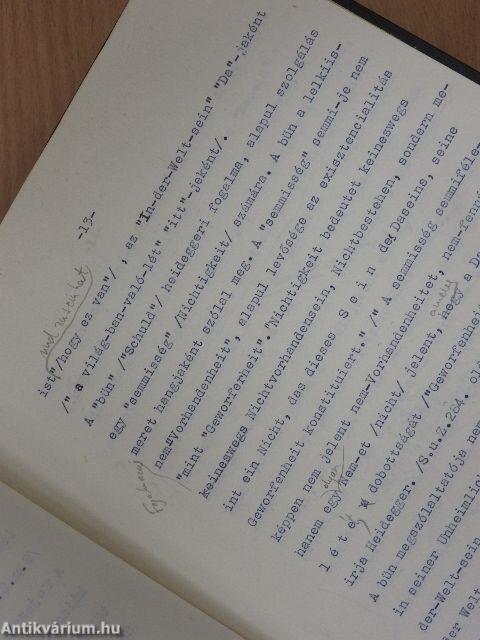 -13-
ist"/hogy ez van"/ , az "In-der-Welt-sein" "Da"-jaként
/" a világ-ban-való-lét" "itt"-jeként/.
A "bün" /"Schuld"/ heideggeri fogalma, alapul szolgálás
egy "semmisség" /Nichtigkeit/ számára. A bün a lelkiis-
meret hangjaként szólal meg. A "semmisség" semmi-je nem
nem"Vorhandenheit", alapul levősége az exisztencialitás
"mint "Geworfenheit"."Nichtigkeit bedeutet keineswegs
keineswegs Nichtvorhandensein, Nichtbestehen, sondern me-
int ein Nicht, das dieses S e i n des Daseins, seine
Geworfenheit konstituiert."/" A semmisség semmiféle-
képpen nem jelent nem-Vorhandenheitet, nem-fenná
hanem egy olyan Nem-et /nicht/ jelent, amely a Da
l é t é t dobottságát /"Geworfenheit
irja Heidegger. /S.u.Z.284. old
A bün megszólaltatója nem
in seiner Unheimlich
der-Welt-sein
der Welt
Antikvárium.hu